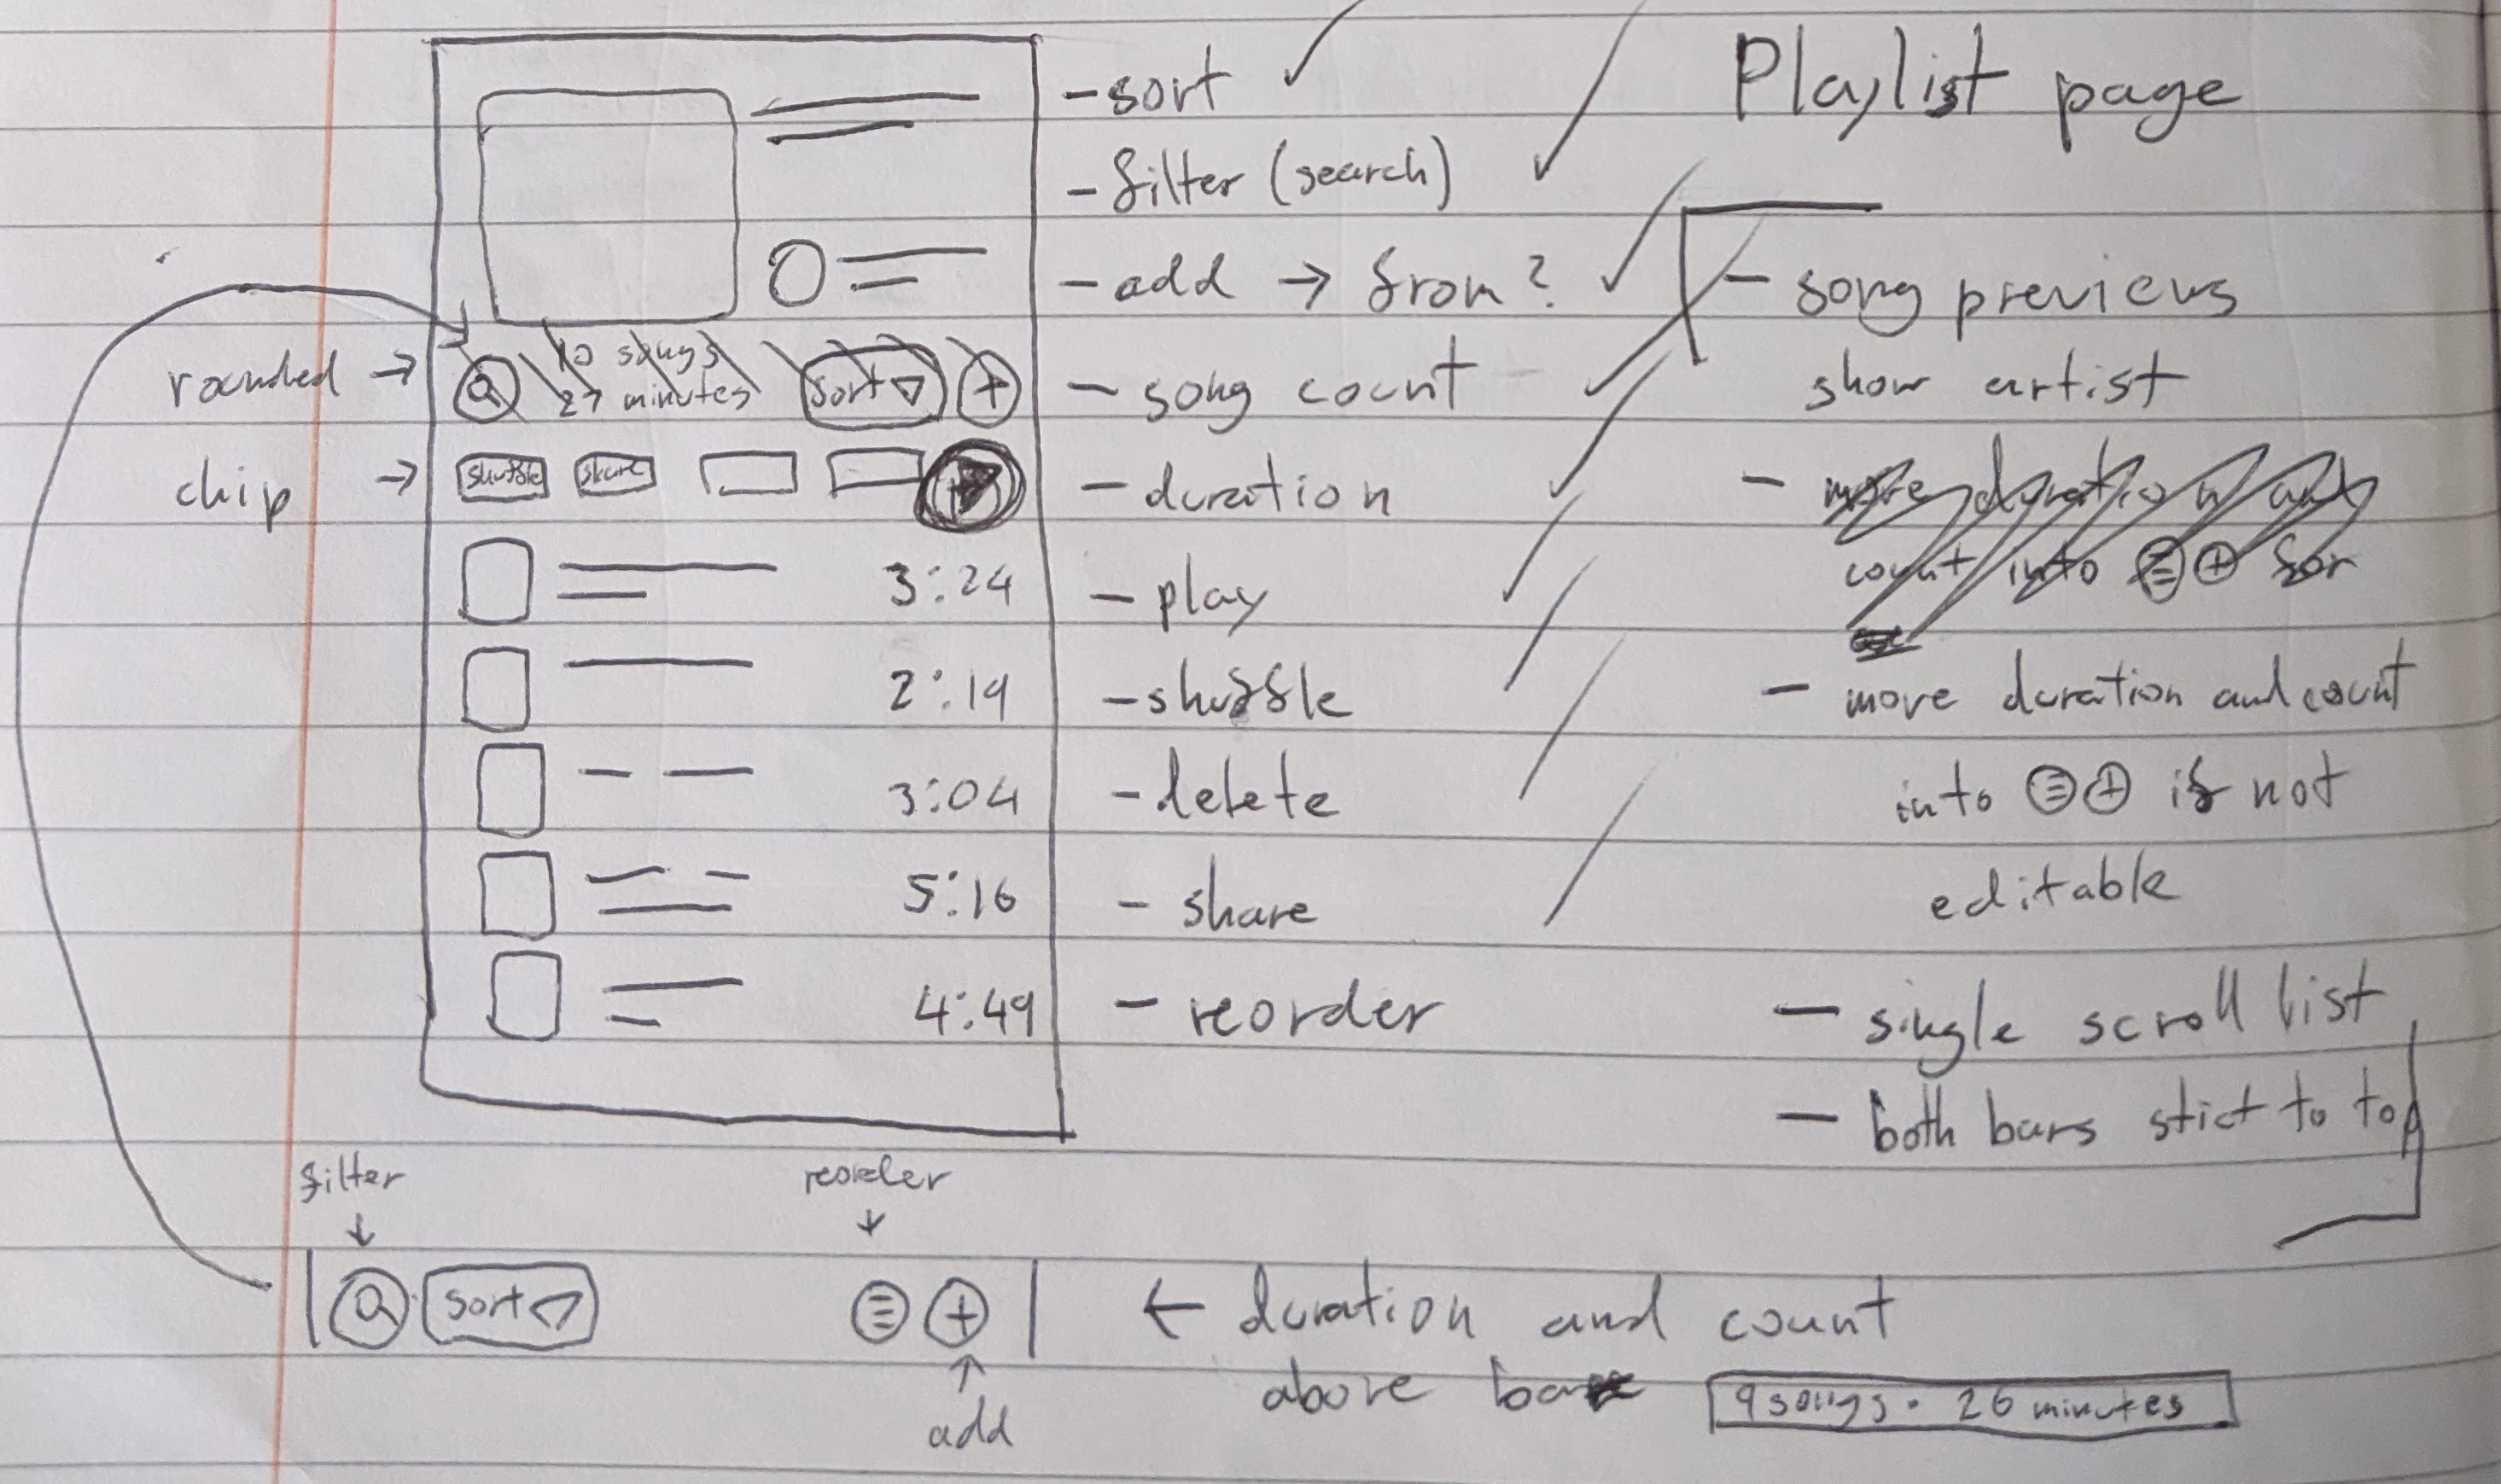 Playlist page
rounded →
chip →
10 songs
27 minutes
sort
shuffle
share
3:24
2:19
3:04
5:16
4:49
- sort ✓
- filter (search) ✓
- add → from? ✓
- song count ✓
- duration ✓
- play ✓
- shuffle
- delete
- share
- reorder
- song previews
show artist
- more duration and
count into for
- move duration and count
into if not
editable
- single scroll list
- both bars stict to top
filter
↓
reorder
↓
sort
↑
add
← duration and count
above bar
9 songs • 26 minutes